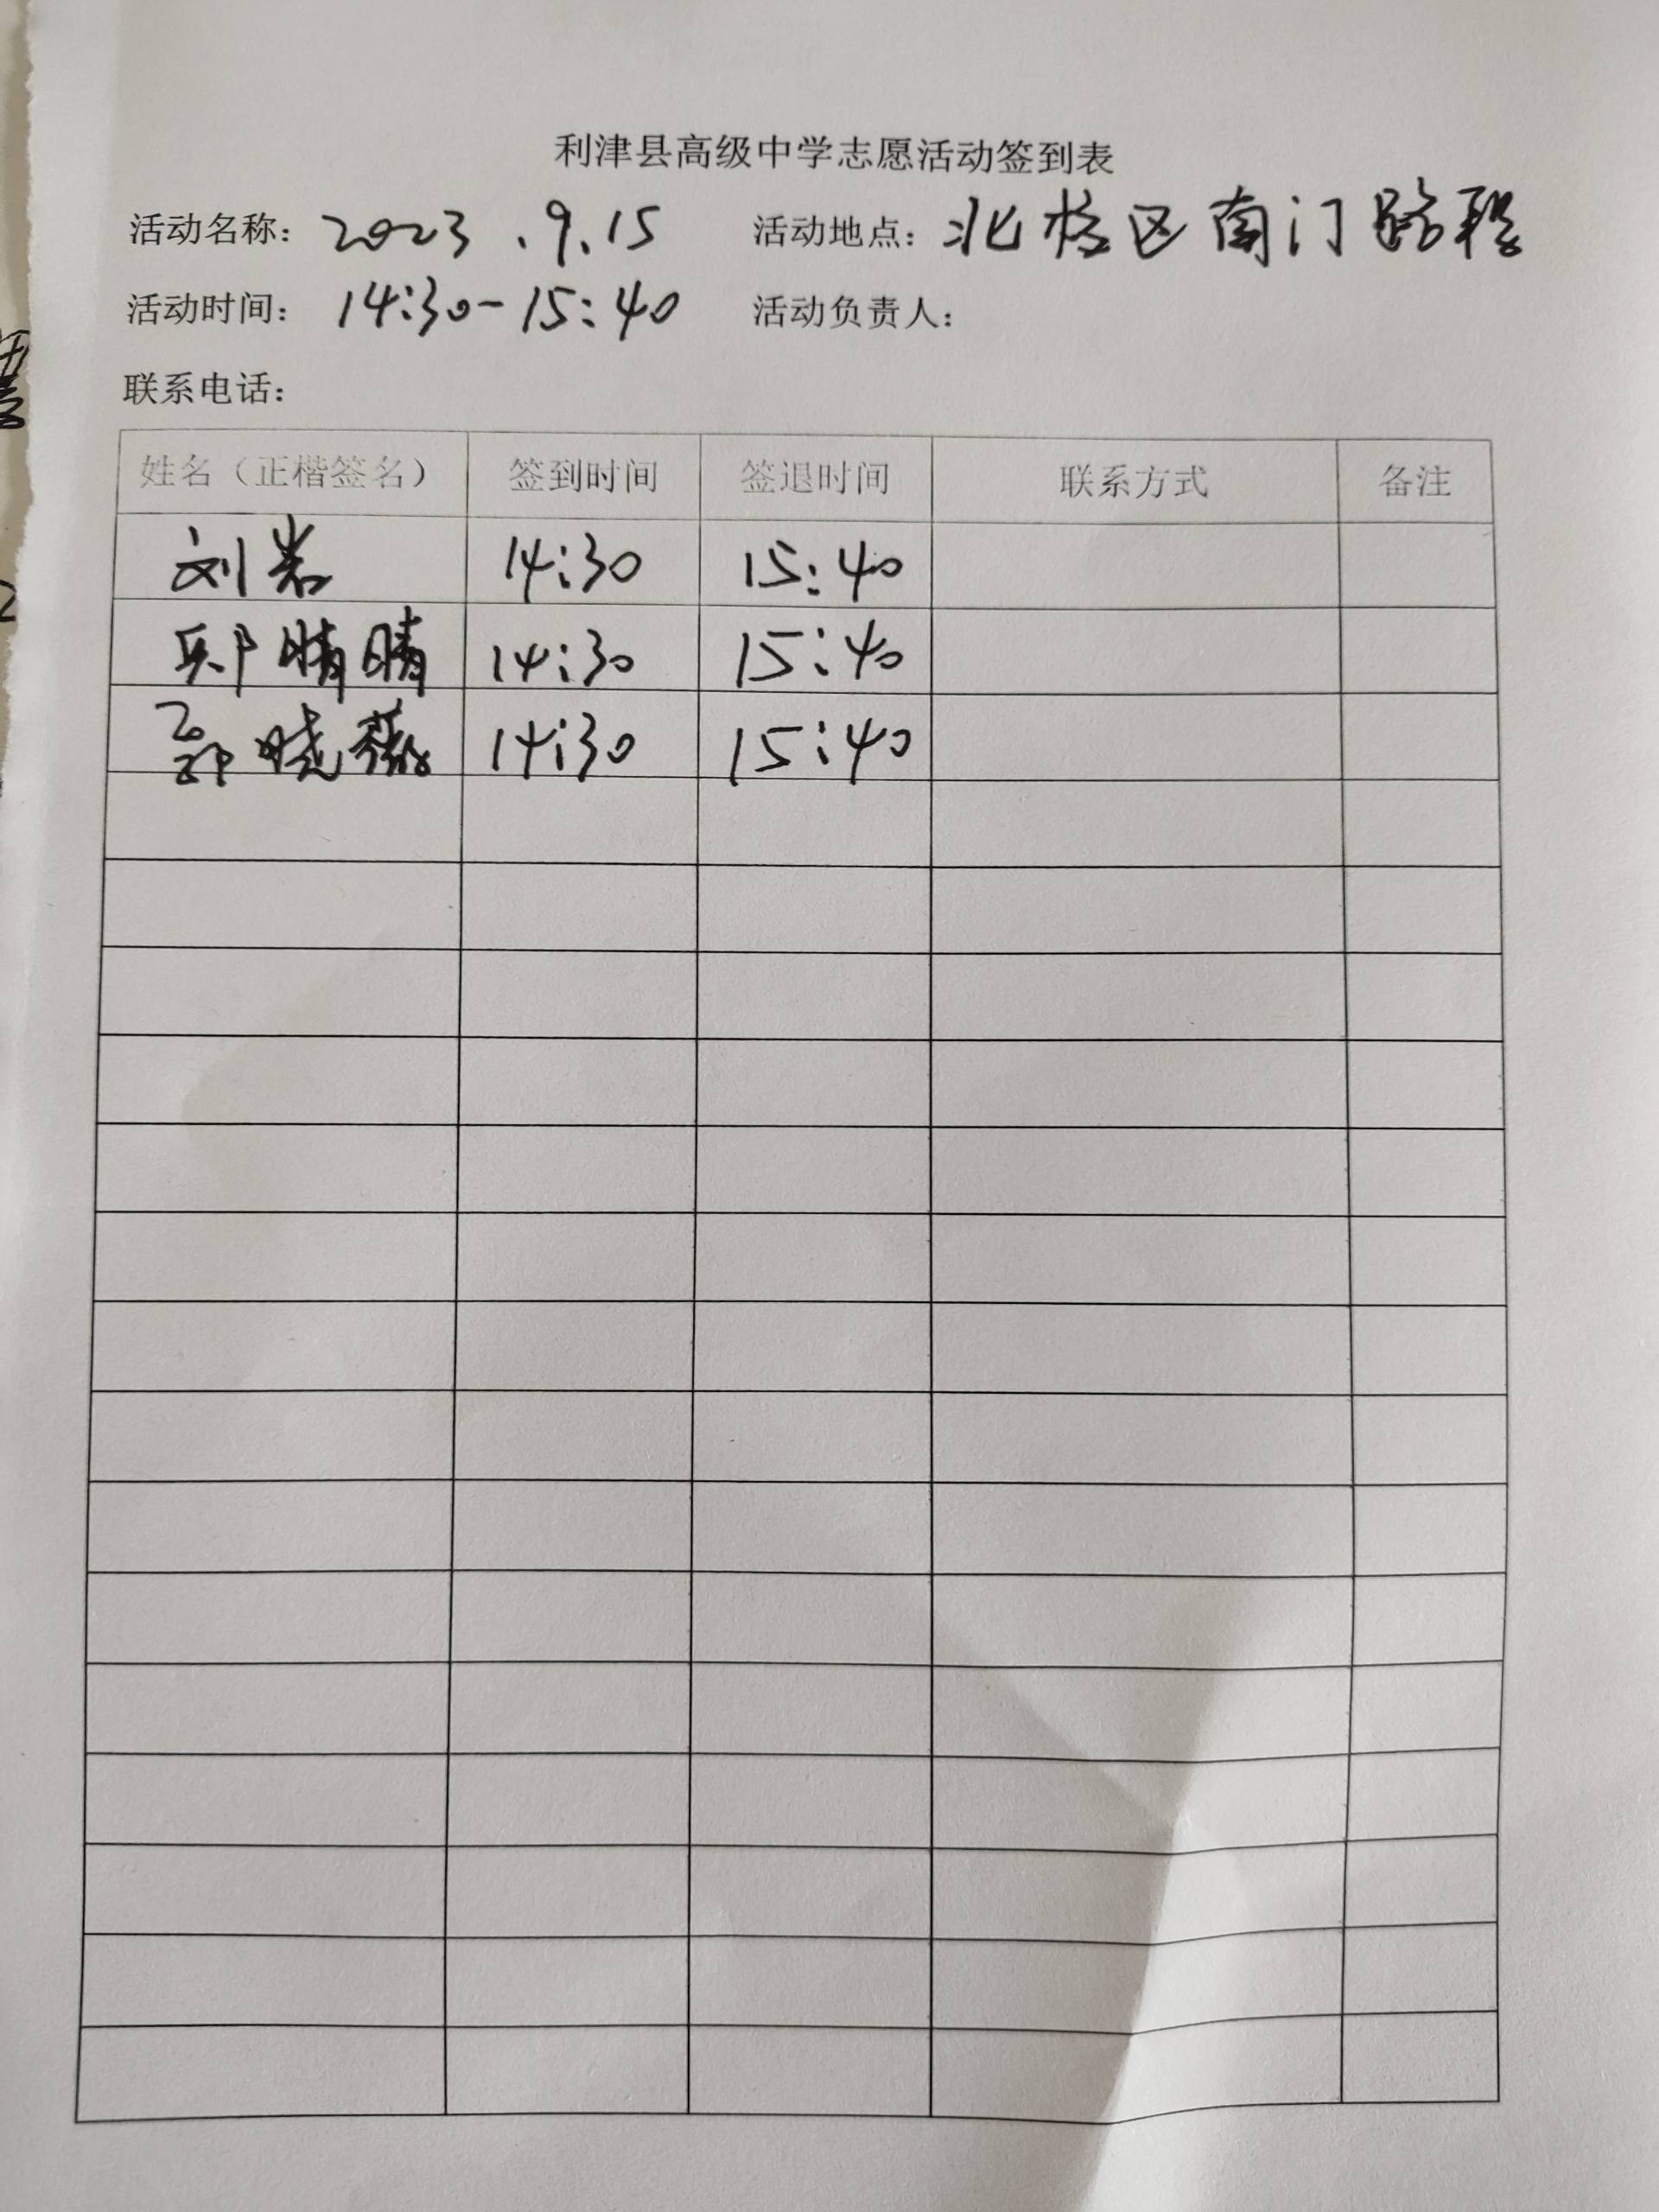 利津县高级中学志愿活动签到表
活动名称：2023.9.15 活动地点：北校区南门路段
活动时间：14:30-15:40 活动负责人：
联系电话：
姓名（正楷签名） 签到时间 签退时间 联系方式 备注
刘岩 14:30 15:40
邱晴晴 14:30 15:40
郭晓薇 14:30 15:40